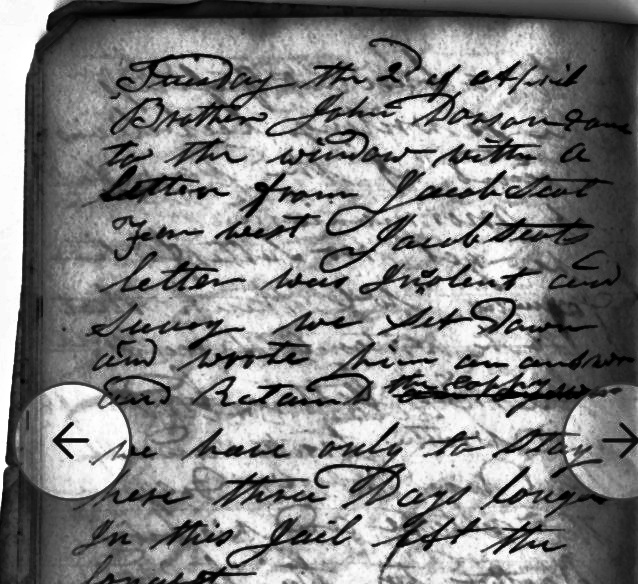 Tuesday the 2d of April
Brother John Dawson came
to the window with a
letter from Jacob Scot
west Jacob Scots
letter was Insolent and
Saucy we set Down
and wrote him an answer
and Retaind the coppy
we have only to Stay
here three Days longer
In this Jail At the
longest